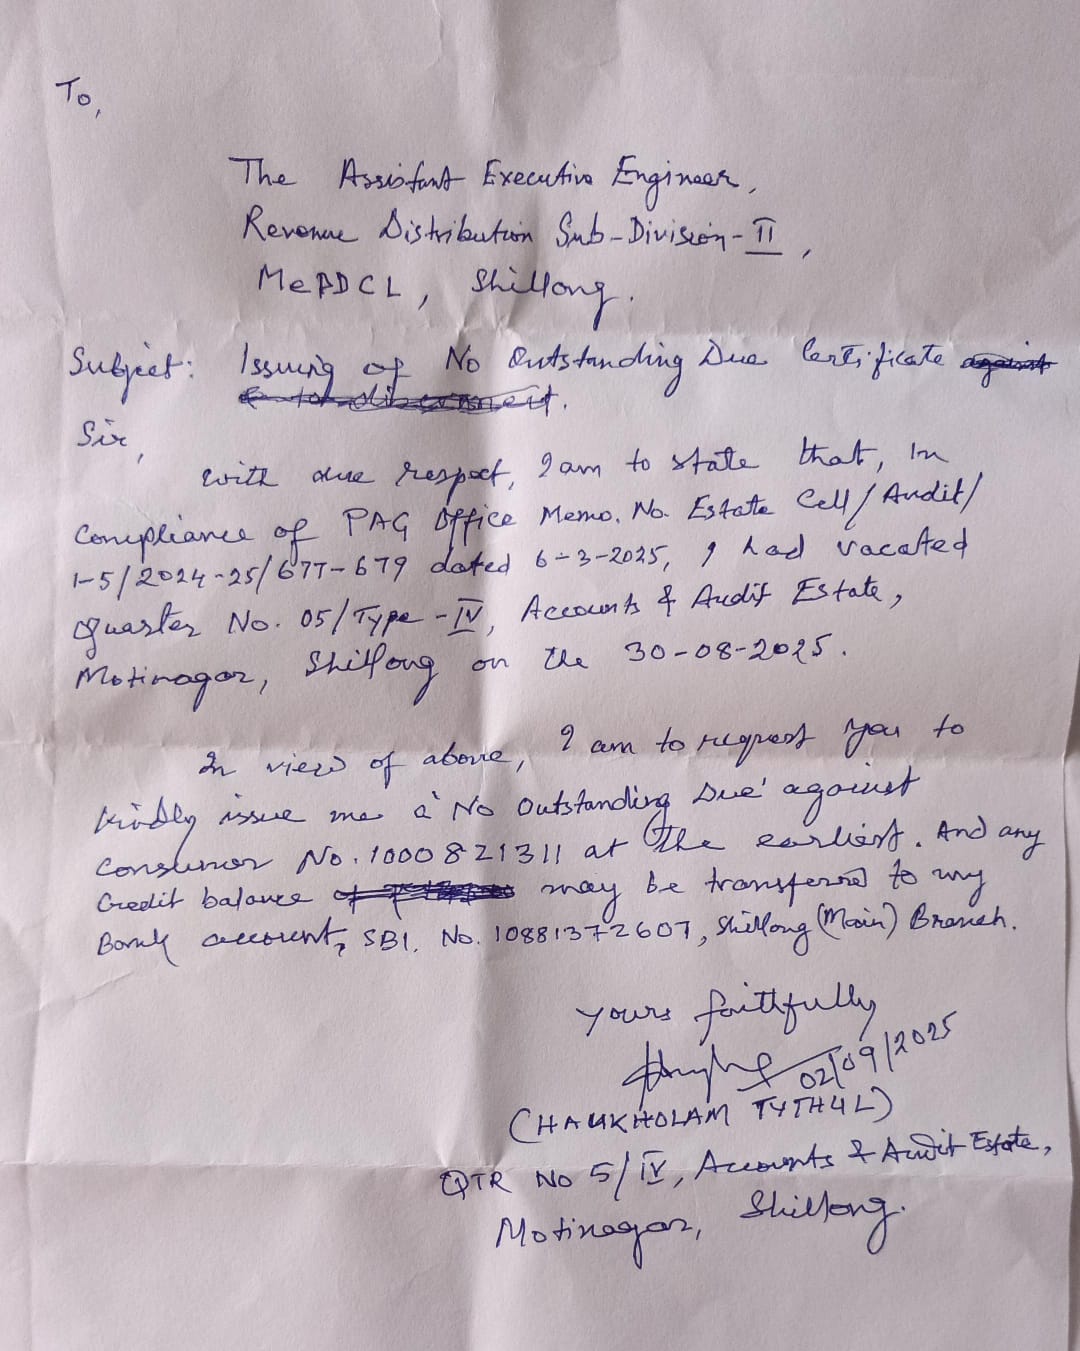 To,
The Assistant Executive Engineer,
Revenue Distribution Sub-Division-II,
MePDCL, Shillong.
Subject: Issuing of No Outstanding Due Certificate against
Sir,
with due respect, I am to state that, in
Compliance of PAG Office Memo. No. Estate Cell/Audit/
1-5/2024-25/677-679 dated 6-3-2025, I had vacated
Quarter No. 05/Type-IV, Accounts & Audit Estate,
Motinagar, Shillong on the 30-08-2025.
In view of above, I am to request you to
kindly issue me a 'No Outstanding Due' against
Consumer No. 1000821311 at the earliest. And any
Credit balance may be transferred to my
Bank account, SBI, No. 10881372607, Shillong (Main) Branch.
Yours faithfully
02/09/2025
(HAUKHOLAM TYTHUL)
QTR No 5/IV, Accounts & Audit Estate,
Motinagar, Shillong.